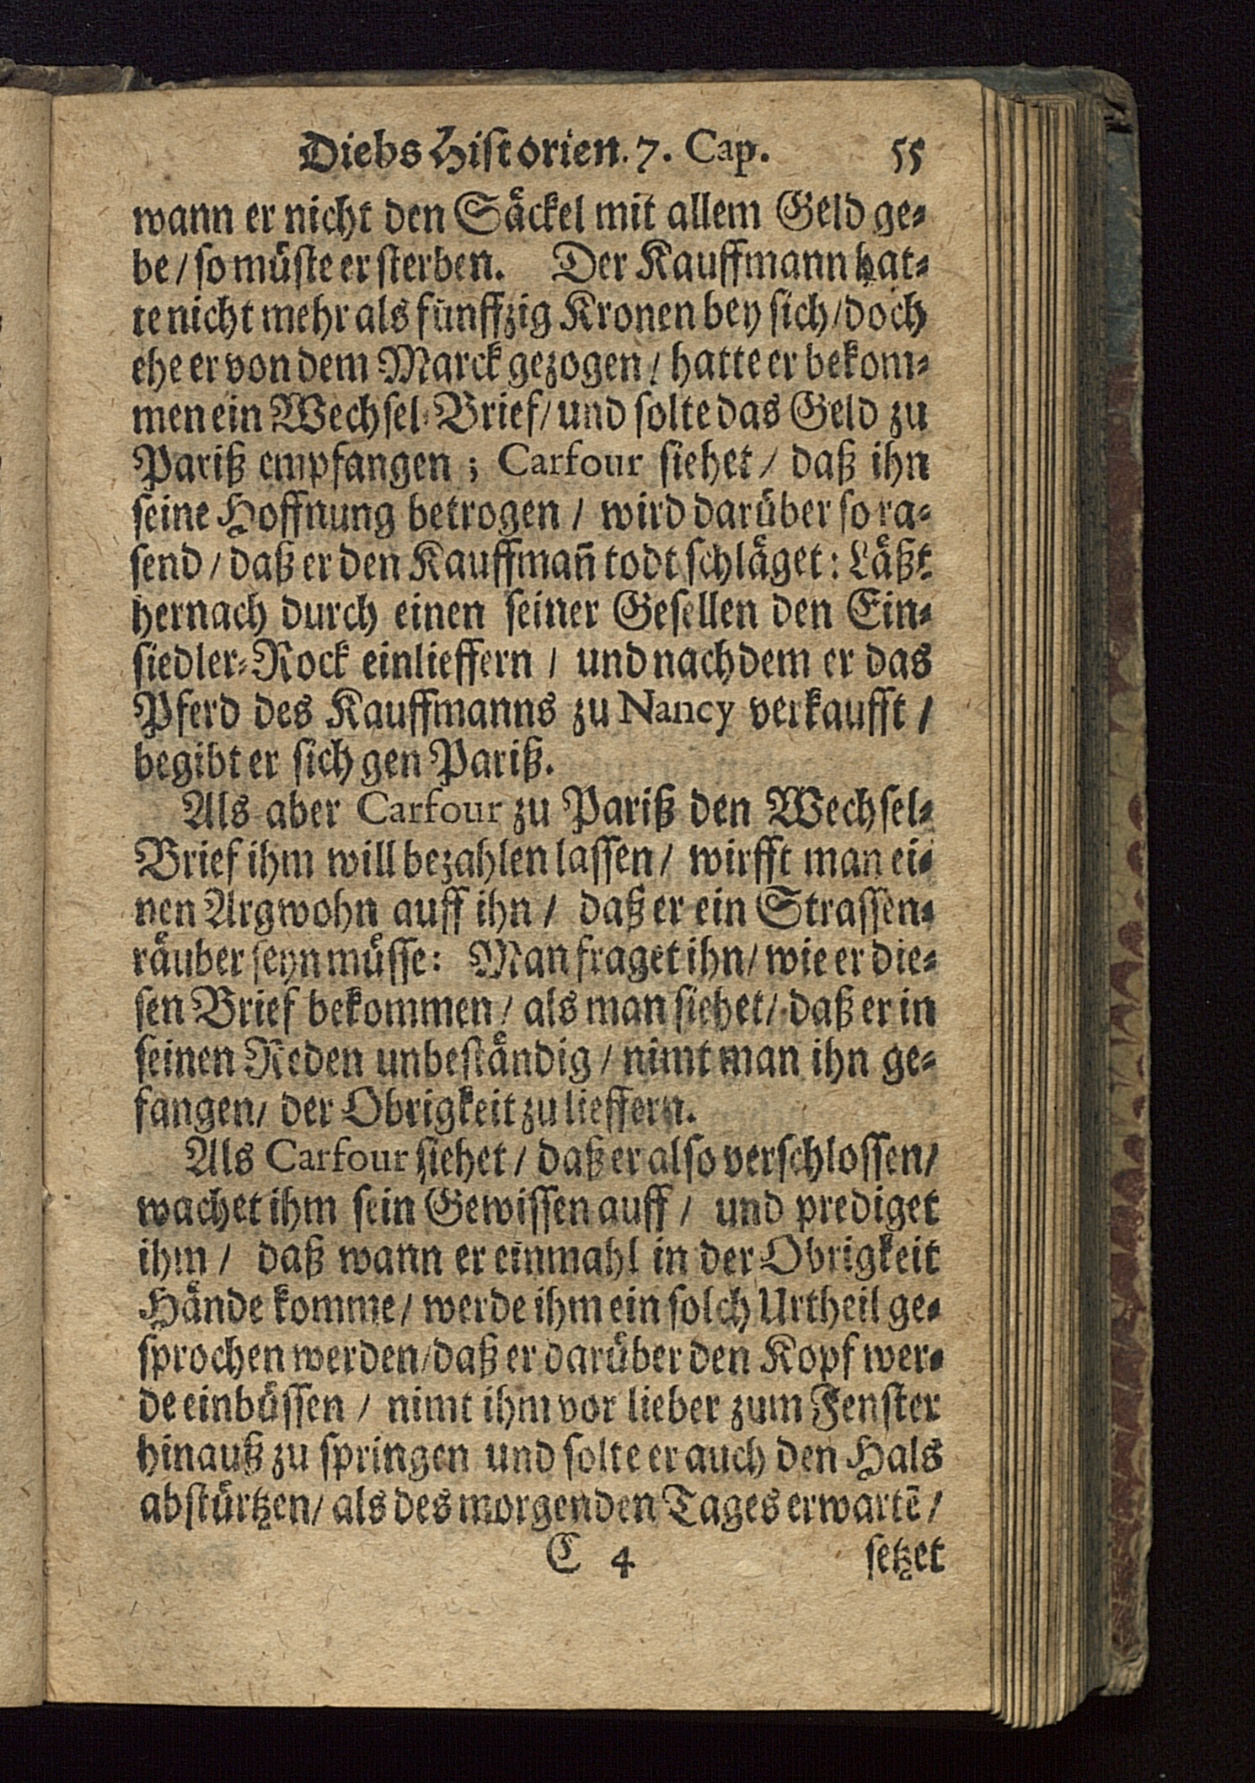 Diebs Historien. 7. Cap. 55
wann er nicht den Säckel mit allem Geld ge-
be / so müste er sterben. Der Kauffmann hat-
te nicht mehr als fünffzig Kronen bey sich / doch
ehe er von dem Marck gezogen / hatte er bekom-
men ein Wechsel-Brief / und solte das Geld zu
Pariß empfangen ; Carfour siehet / daß ihn
seine Hoffnung betrogen / wird darüber so ra-
send / daß er den Kauffmañ todt schläget: Läßt
hernach durch einen seiner Gesellen den Ein-
siedler-Rock einlieffern / und nachdem er das
Pferd des Kauffmanns zu Nancy verkaufft /
begibt er sich gen Pariß.
Als aber Carfour zu Pariß den Wechsel-
Brief ihm will bezahlen lassen / wirfft man ei-
nen Argwohn auff ihn / daß er ein Strassen-
räuber seyn müsse: Man fraget ihn / wie er die-
sen Brief bekommen / als man siehet / daß er in
seinen Reden unbeständig / nimt man ihn ge-
fangen / der Obrigkeit zu lieffern.
Als Carfour siehet / daß er also verschlossen /
wachet ihm sein Gewissen auff / und prediget
ihm / daß wann er einmahl in der Obrigkeit
Hände komme / werde ihm ein solch Urtheil ge-
sprochen werden / daß er darüber den Kopf wer-
de einbüssen / nimt ihm vor lieber zum Fenster
hinauß zu springen und solte er auch den Hals
abstürtzen / als des morgenden Tages erwartē /
C 4 setzet